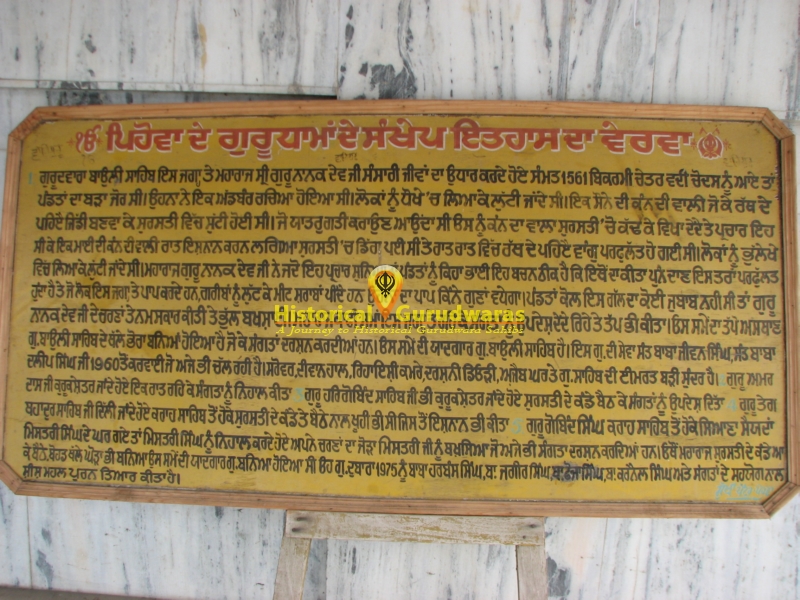 ੴ ਪਿਹੋਵਾ ਦੇ ਗੁਰੂਧਾਮਾਂ ਦੇ ਸੰਖੇਪ ਇਤਹਾਸ ਦਾ ਵੇਰਵਾ
1 ਗੁਰੂਦਵਾਰਾ ਬਾਉਲੀ ਸਾਹਿਬ ਇਸ ਜਗਾ੍ ਤੇ ਮਹਾਰਾਜ ਸ੍ਰੀ ਗੁਰੂ ਨਾਨਕ ਦੇਵ ਜੀ ਸੰਸਾਰੀ ਜੀਵਾਂ ਦਾ ਉਧਾਰ ਕਰਦੇ ਹੋਏ ਸੰਮਤ 1561 ਬਿਕਰਮੀ ਚੇਤਰ ਵਦੀ ਚੋਦਸ ਨੂੰ ਆਏ ਤਾਂ
ਪੰਡਤਾਂ ਦਾ ਬੜਾ ਜੋਰ ਸੀ। ਉਹਨਾਂ ਨੇ ਇਕ ਅਡੰਬਰ ਰਚਿਆ ਹੋਇਆ ਸੀ। ਲੋਕਾਂ ਨੂੰ ਧੋਖੇ 'ਚ ਲਿਆ ਕੇ ਲੁੱਟੀ ਜਾਂਦੇ ਸੀ। ਇਕ ਸੋਨੇ ਦੀ ਕੰਨ ਦੀ ਵਾਲੀ ਜੋ ਕੇ ਰੱਥ ਦੇ
ਪਹਿਏ ਜਿੰਡੀ ਬਣਵਾ ਕੇ ਸੁਰਸਤੀ ਵਿੱਚ ਸੁੱਟੀ ਹੋਈ ਸੀ। ਜੋ ਯਾਤਰੂ ਗਤੀ ਕਰਾਉਣ ਆਉਂਦਾ ਸੀ ਓਸ ਨੂੰ ਕੰਨ ਦਾ ਵਾਲਾ ਸੁਰਸਤੀ 'ਚੋ ਕੱਢ ਕੇ ਵਿਖਾ ਦੇਂਦੇ ਤੇ ਪ੍ਰਚਾਰ ਇਹ
ਸੀ ਕੇ ਇਕ ਮਾਈ ਦੀ ਕੰਨ ਦੀ ਵਾਲੀ ਰਾਤ ਇਸ਼ਨਾਨ ਕਰਨ ਲਗਿਆ ਸੁਰਸਤੀ 'ਚ ਡਿਗ ਪਈ ਸੀ ਤੇ ਰਾਤੋ ਰਾਤ ਵਿੱਚ ਰੱਥ ਦੇ ਪਹਿਏ ਵਾਂਗੁ ਪਰਫੁੱਲਤ ਹੋ ਗਈ ਸੀ। ਲੋਕਾਂ ਨੂੰ ਭੁੱਲੇਖੇ
ਵਿੱਚ ਲਿਆ ਕੇ ਲੁੱਟੀ ਜਾਂਦੇ ਸੀ। ਮਹਾਰਾਜ ਗੁਰੂ ਨਾਨਕ ਦੇਵ ਜੀ ਨੇ ਜਦੋਂ ਇਹ ਪ੍ਰਚਾਰ ਪੰਡਤਾਂ ਨੂੰ ਕਿਹਾ ਭਾਈ ਇਹ ਬਚਨ ਠੀਕ ਹੈ ਕਿ ਇਥੋਂ ਦਾ ਕੀਤਾ ਪੁੰਨ ਦਾਣ ਇਸ ਤਰਾਂ ਪਰਫੁੱਲਤ
ਹੁੰਦਾ ਹੈ ਤੇ ਜੋ ਲੋਕ ਇਸ ਜਗਾ੍ ਤੇ ਪਾਪ ਕਰਦੇ ਹਨ, ਗਰੀਬਾਂ ਨੂੰ ਲੁੱਟ ਕੇ ਮੀਟ ਸਰਾਬਾਂ ਪੀਏ ਹਨ ਪਾਪ ਕਿੰਨੇ ਗੁਣਾਂ ਵਧੇਗਾ। ਪੰਡਤਾਂ ਕੋਲ ਇਸ ਗੱਲ ਦਾ ਕੋਈ ਜੁਬਾਬ ਨਹੀ ਸੀ ਤਾਂ ਗੁਰੂ
ਨਾਨਕ ਦੇਵ ਜੀ ਦੇ ਚਰਣਾਂ ਤੇ ਨਮਸਕਾਰ ਕੀਤੀ ਤੇ ਭੁੱਲ ਬਖਸ਼ਾ ਉਪਦੇਸ਼ ਦੇਂਦੇ ਰਿਹੇ ਤੇ ਤੱਪ ਭੀ ਕੀਤਾ। ਓਸ ਸਮੇਂ ਦਾ ਤੱਪੋ ਅਸਥਾਨ
ਗੁ. ਬਾਉਲੀ ਸਾਹਿਬ ਦੇ ਥੱਲੇ ਭੋਰਾ ਬਨਿਆ ਹੋਇਆ ਹੈ ਜੋ ਕੇ ਸੰਗਤਾਂ ਦਰਸ਼ਨ ਕਰਦੀਆਂ ਹਨ। ਓਸ ਸਮੇਂ ਦੀ ਯਾਦਗਾਰ ਗੁ. ਬਾਉਲੀ ਸਾਹਿਬ ਹੈ। ਇਸ ਗੁ. ਦੀ ਸੇਵਾ ਸੰਤ ਬਾਬਾ ਜੀਵਨ ਸਿੰਘ, ਸੰਤ ਬਾਬਾ
ਦਲੀਪ ਸਿੰਘ ਜੀ 1960 ਤੋਂ ਕਰਵਾਈ ਜੋ ਅਜੇ ਭੀ ਚੱਲ ਰਹੀ ਹੈ। ਸਰੋਵਰ, ਦੀਵਾਨ ਹਾਲ, ਰਿਹਾਇਸ਼ੀ ਕਮਰੇ, ਦਰਸ਼ਨੀ ਡਿਓੜੀ, ਅਜੈਬ ਘਰ ਤੇ ਗੁ. ਸਾਹਿਬ ਦੀ ਈਮਾਰਤ ਬੜੀ ਸੁੰਦਰ ਹੈ। 2 ਗੁਰੂ ਅਮਰ
ਦਾਸ ਜੀ ਕੁਰੂਕਸ਼ੇਤਰ ਜਾਂਦੇ ਹੋਏ ਇਕ ਰਾਤ ਰਹਿ ਕੇ ਸੰਗਤਾਂ ਨੂੰ ਨਿਹਾਲ ਕੀਤਾ 3 ਗੁਰੂ ਹਰਿ ਗੋਬਿੰਦ ਸਾਹਿਬ ਜੀ ਭੀ ਕੁਰੂਕਸ਼ੇਤਰ ਜਾਂਦੇ ਹੋਏ ਸੁਰਸਤੀ ਦੇ ਕੰਡੇ ਬੈਠ ਕੇ ਸੰਗਤਾਂ ਨੂੰ ਉਪਦੇਸ਼ ਦਿੱਤਾ 4 ਗੁਰੂ ਤੇਗ
ਬਹਾਦੁਰ ਸਾਹਿਬ ਜੀ ਦਿੱਲੀ ਜਾਂਦੇ ਹੋਏ ਕਰਾਹ ਸਾਹਿਬ ਤੋਂ ਹੋਕੇ ਸੁਰਸਤੀ ਦੇ ਕੰਡੇ ਤੇ ਬੈਠੇ ਨਾਲ ਖੂਹੀ ਭੀ ਸੀ ਜਿਸ ਤੋਂ ਇਸ਼ਨਾਨ ਭੀ ਕੀਤਾ 5 ਗੁਰੂ ਗੋਬਿੰਦ ਸਿੰਘ ਕਰਾਹ ਸਾਹਿਬ ਤੋਂ ਹੋਕੇ ਸਿਆਣਾ ਸੈਯਦਾਂ
ਮਿਸਤਰੀ ਸਿੰਘ ਦੇ ਘਰ ਗਏ ਤਾਂ ਮਿਸਤਰੀ ਸਿੰਘ ਨੂੰ ਨਿਹਾਲ ਕਰਦੇ ਹੋਏ ਅਪਨੇ ਚਰਣਾਂ ਦਾ ਜੋੜਾ ਮਿਸਤਰੀ ਜੀ ਨੂੰ ਬਖਸ਼ਿਆ ਜੋ ਅਜੇ ਭੀ ਸੰਗਤਾਂ ਦਰਸ਼ਨ ਕਰਦਿਆਂ ਹਨ। ਓਥੋਂ ਮਹਾਰਾਜ ਸੁਰਸਤੀ ਦੇ ਕੰਡੇ ਆ
ਕੇ ਬੈਠੇ, ਬੋਹੜ ਥੱਲੇ ਘੋੜਾ ਭੀ ਬਨਿਆ ਉਸ ਸਮੇਂ ਦੀ ਯਾਦਗਾਰ ਗੁ. ਬਨਿਆ ਹੋਇਆ ਸੀ ਉਹ ਗੁ. ਦੁਬਾਰਾ 1975 ਨੂੰ ਬਾਬਾ ਹਰਬੰਸ ਸਿੰਘ, ਬਾ. ਜਗੀਰ ਸਿੰਘ, ਬਾ. ਤੇਜਾ ਸਿੰਘ, ਬਾ. ਕਰਨੈਲ ਸਿੰਘ ਅਤੇ ਸੰਗਤਾਂ ਦੇ ਸਹਯੋਗ ਨਾਲ
ਸੀਸ ਮਹਲ ਪੂਰਨ ਤਿਆਰ ਕੀਤਾ ਹੈ।
Historical Gurudwaras
A Journey to Historical Gurudwara Sahibs